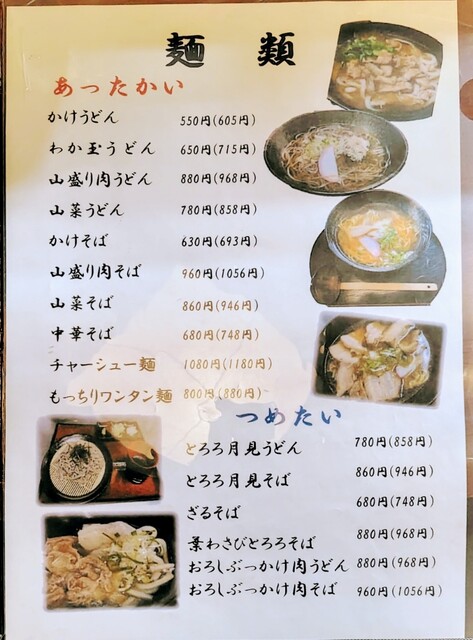 麺類
あったかい
かけうどん 550円(605円)
わか玉うどん 650円(715円)
山盛り肉うどん 880円(968円)
山菜うどん 780円(858円)
かけそば 630円(693円)
山盛り肉そば 960円(1056円)
山菜そば 860円(946円)
中華そば 680円(748円)
チャーシュー麺 1080円(1180円)
もっちりワンタン麺 800円(880円)
つめたい
とろろ月見うどん 780円(858円)
とろろ月見そば 860円(946円)
ざるそば 680円(748円)
葉わさびとろろそば 880円(968円)
おろしぶっかけ肉うどん 880円(968円)
おろしぶっかけ肉そば 960円(1056円)